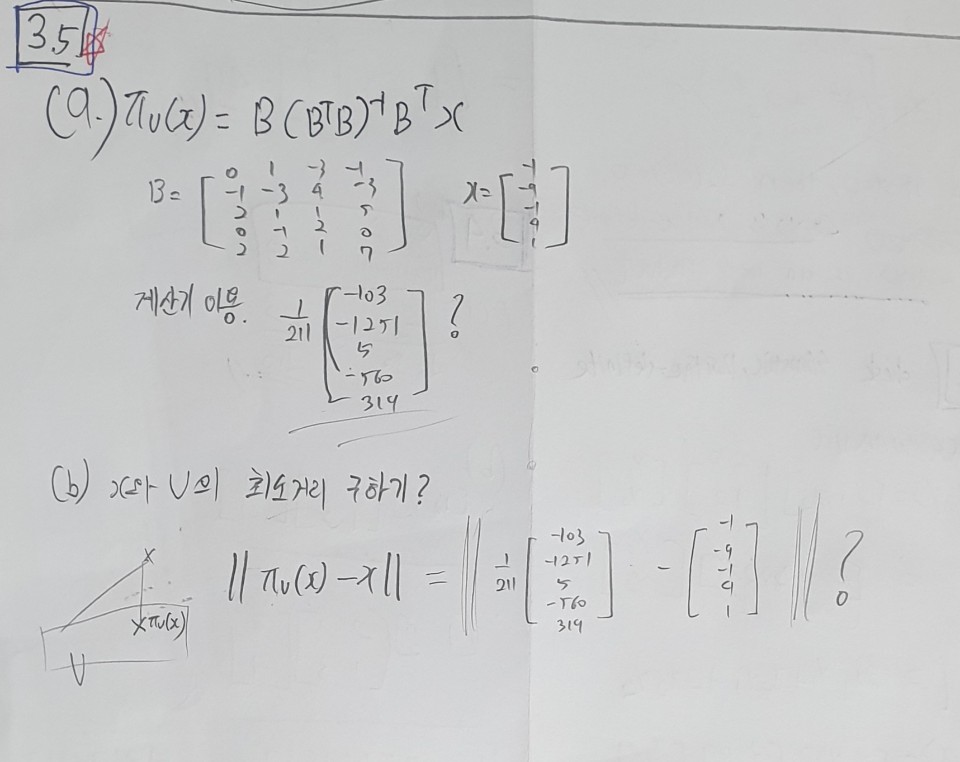 3.5
(a.) πᵤ(x) = B (BᵀB)⁻¹ Bᵀ x
B = [ 0 1 -3 -1
-1 -3 4 -3
2 1 1 5
0 -1 2 0
2 2 1 7 ]
x = [ -1
-9
-1
4
1 ]
계산기 이용.
1/211 [ -103
-1251
5
-560
314 ] ?
(b) x와 U의 최소거리 구하기?
x
πᵤ(x)
U
|| πᵤ(x) - x || = || 1/211 [ -103
-1251
5
-560
314 ] - [ -1
-9
-1
4
1 ] || ?